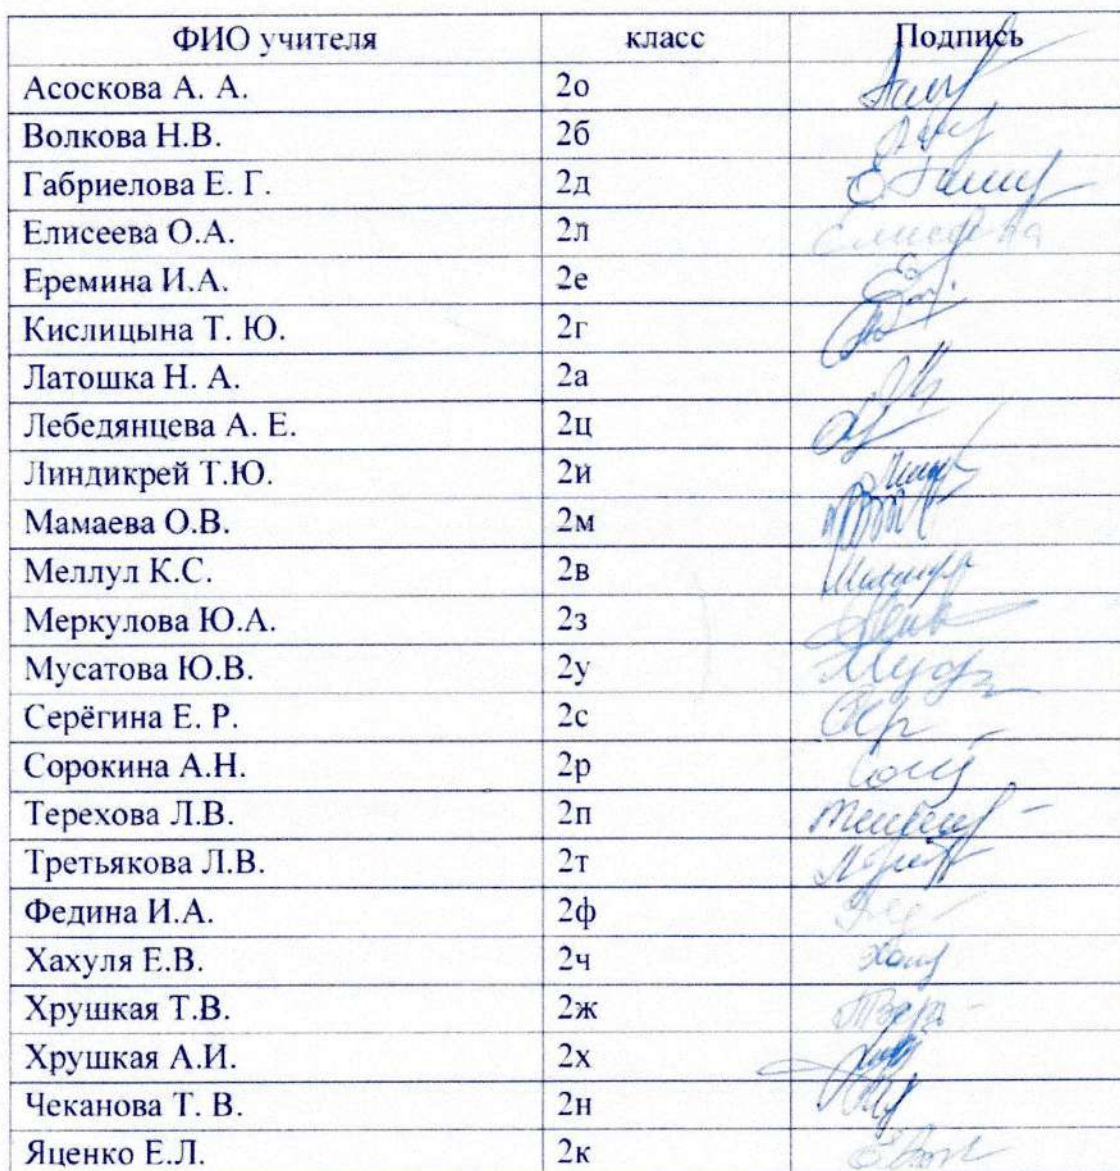 ФИО учителя класс Подпись
Асоскова А. А. 2о
Волкова Н.В. 2б
Габриелова Е. Г. 2д
Елисеева О.А. 2л Елисеева
Еремина И.А. 2е
Кислицына Т. Ю. 2г
Латошка Н. А. 2а
Лебедянцева А. Е. 2ц
Линдикрей Т.Ю. 2и
Мамаева О.В. 2м
Меллул К.С. 2в
Меркулова Ю.А. 2з
Мусатова Ю.В. 2у
Серёгина Е. Р. 2с
Сорокина А.Н. 2р
Терехова Л.В. 2п
Третьякова Л.В. 2т
Федина И.А. 2ф
Хахуля Е.В. 2ч
Хрушкая Т.В. 2ж
Хрушкая А.И. 2х
Чеканова Т. В. 2н
Яценко Е.Л. 2к